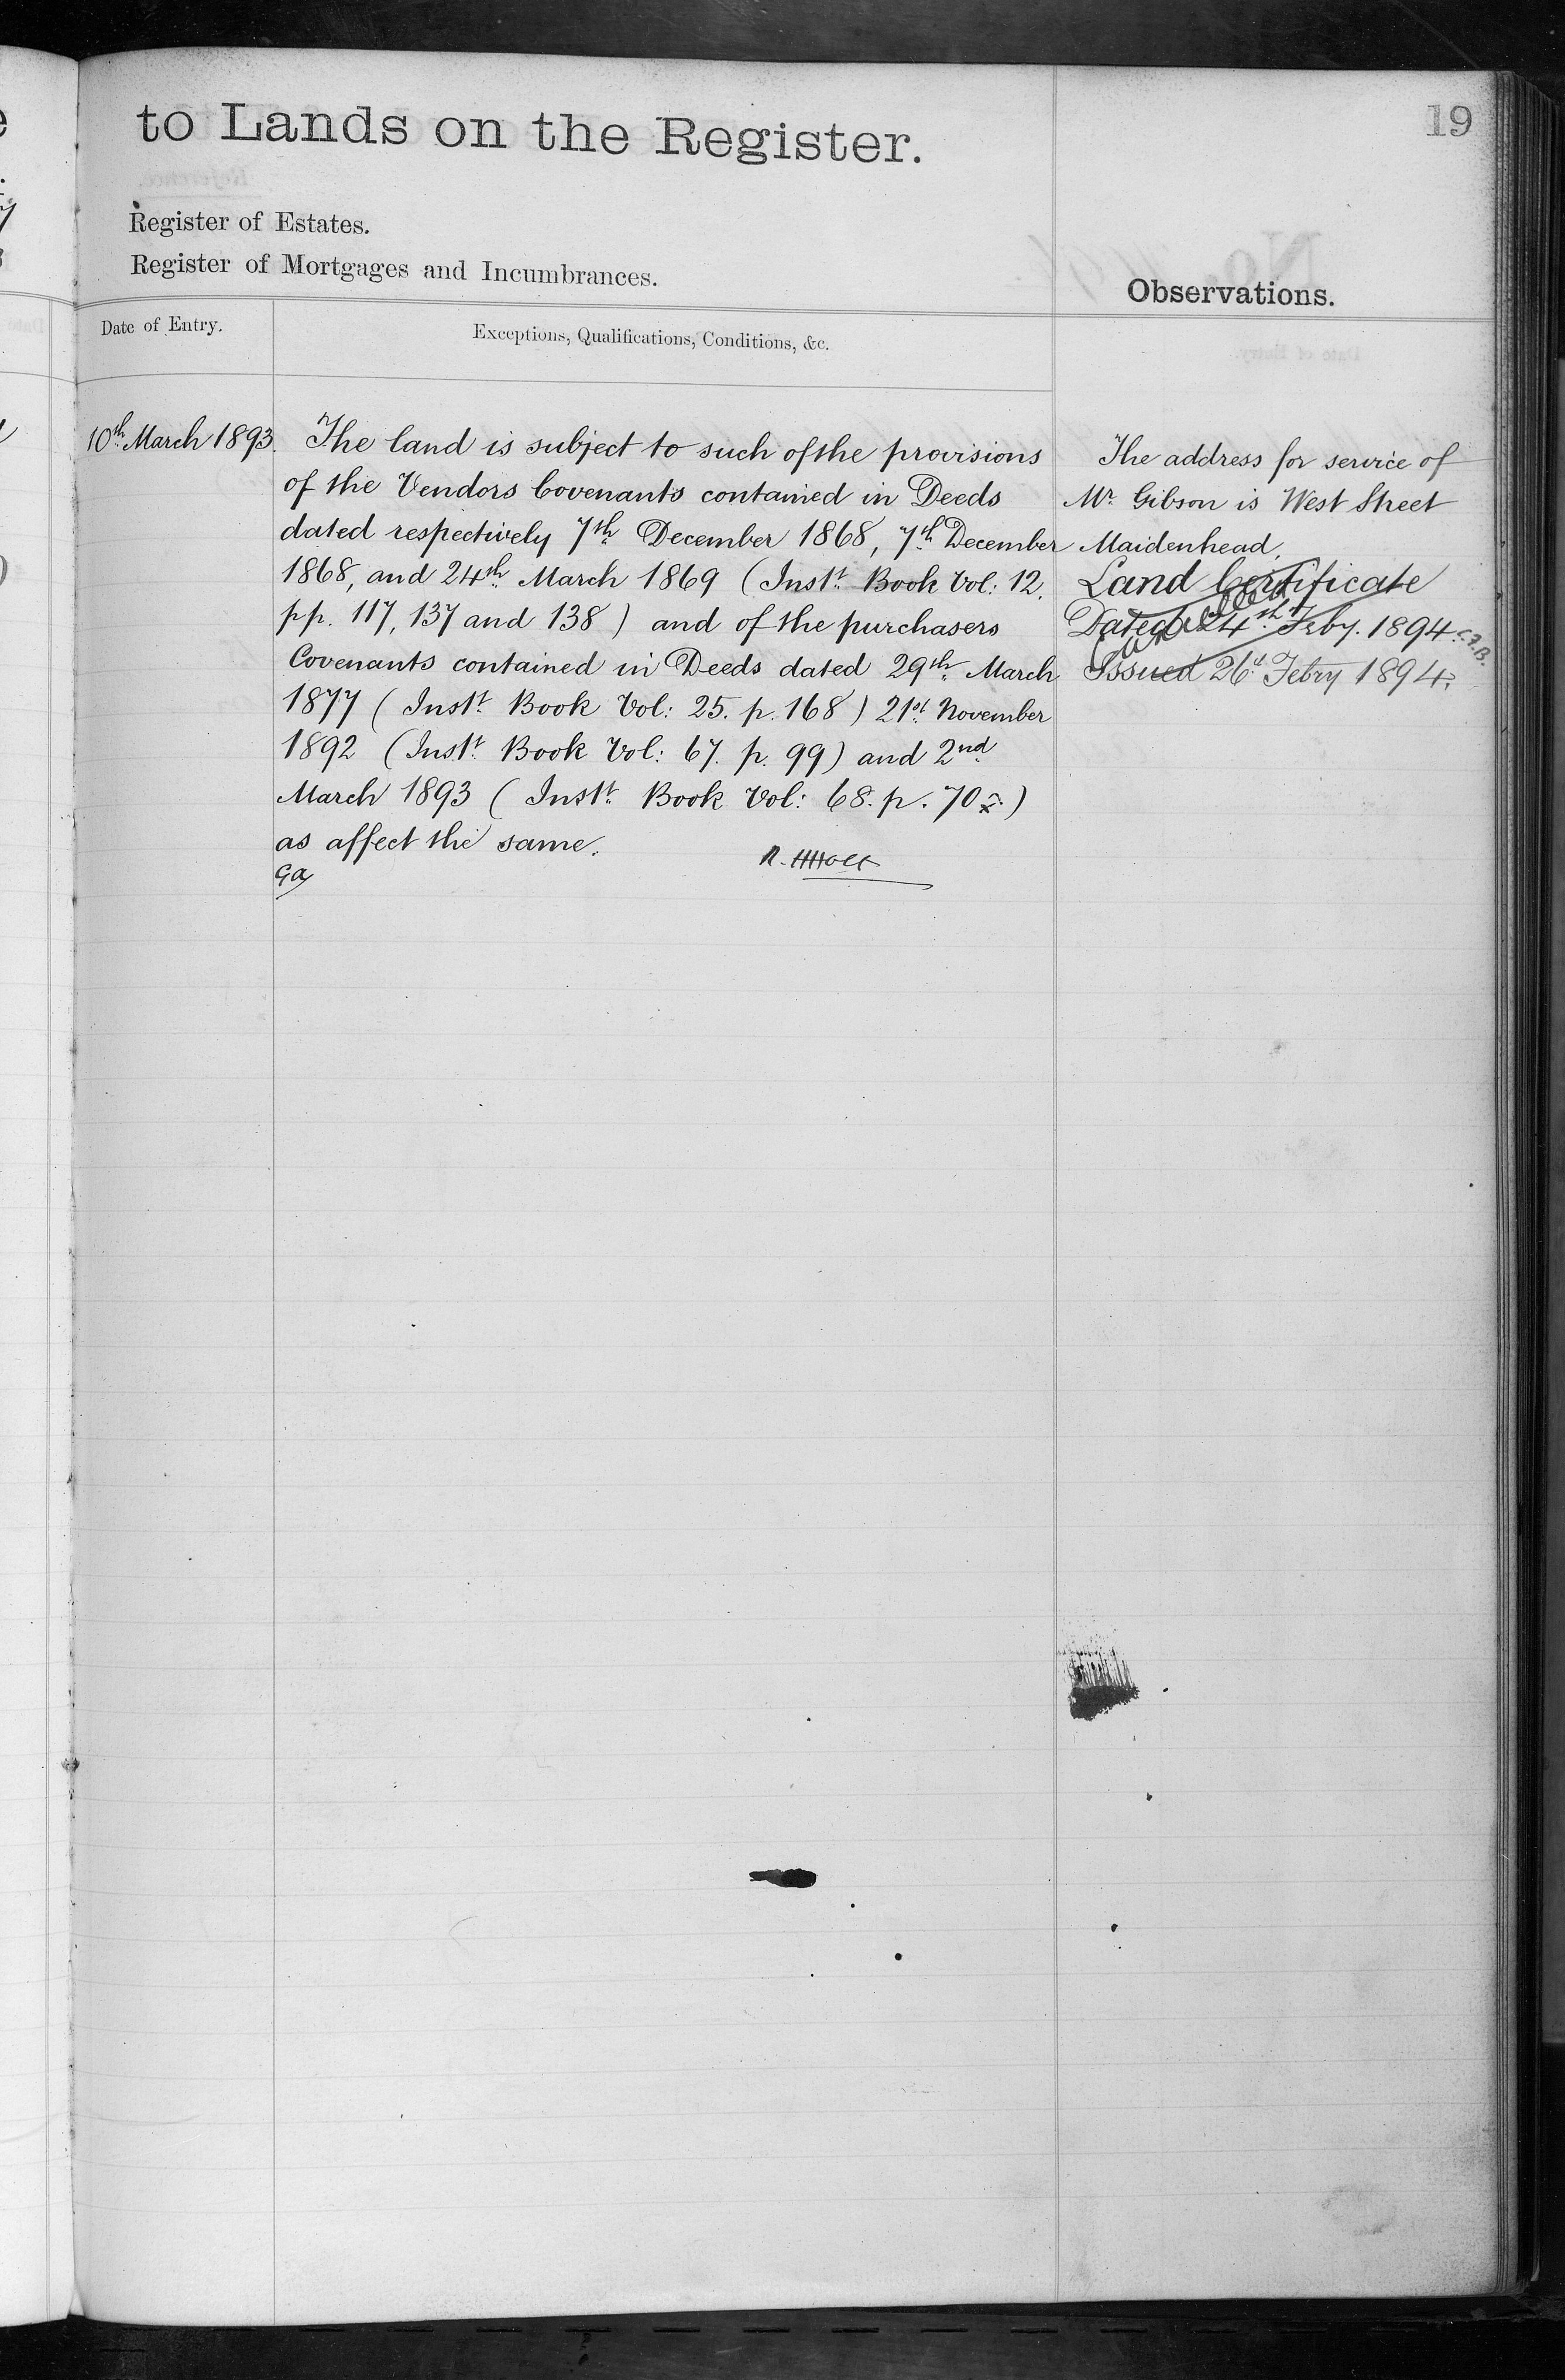 to Lands on the Register.
19
Register of Estates.
Register of Mortgages and Incumbrances.
Observations.
Date of Entry.
Exceptions, Qualifications, Conditions, &c.
10th March 1893.
The land is subject to such of the provisions
of the Vendors Covenants contained in Deeds
dated respectively 7th December 1868, 7th December
1868, and 24th March 1869 (Instt Book Vol: 12.
pp. 117, 137 and 138) and of the purchasers
Covenants contained in Deeds dated 29th March
1877 (Instt Book Vol: 25. p. 168) 21st November
1892 (Instt Book Vol: 67. p. 99) and 2nd
March 1893 (Instt Book Vol: 68. p. 70)
as affect the same.
The address for service of
Mr. Gibson is West Street
Maidenhead.
Land Certificate
Dated 24th Feby. 1894.
Cancelled
Issued 26th Febry 1894.